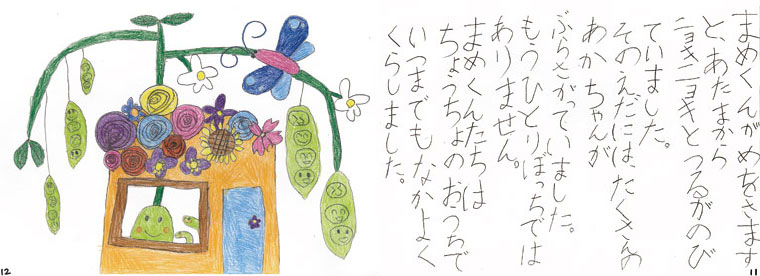 まめくんがめをさます
と、あたまから
ニョキニョキとつるがのび
ていました。
そのえだには、たくさんの
あかちゃんが
ぶらさがっていました。
もうひとりぼっちでは
ありません。
まめくんたちは
ちょうちょのおうちで
いつまでもなかよく
くらしました。
11
12